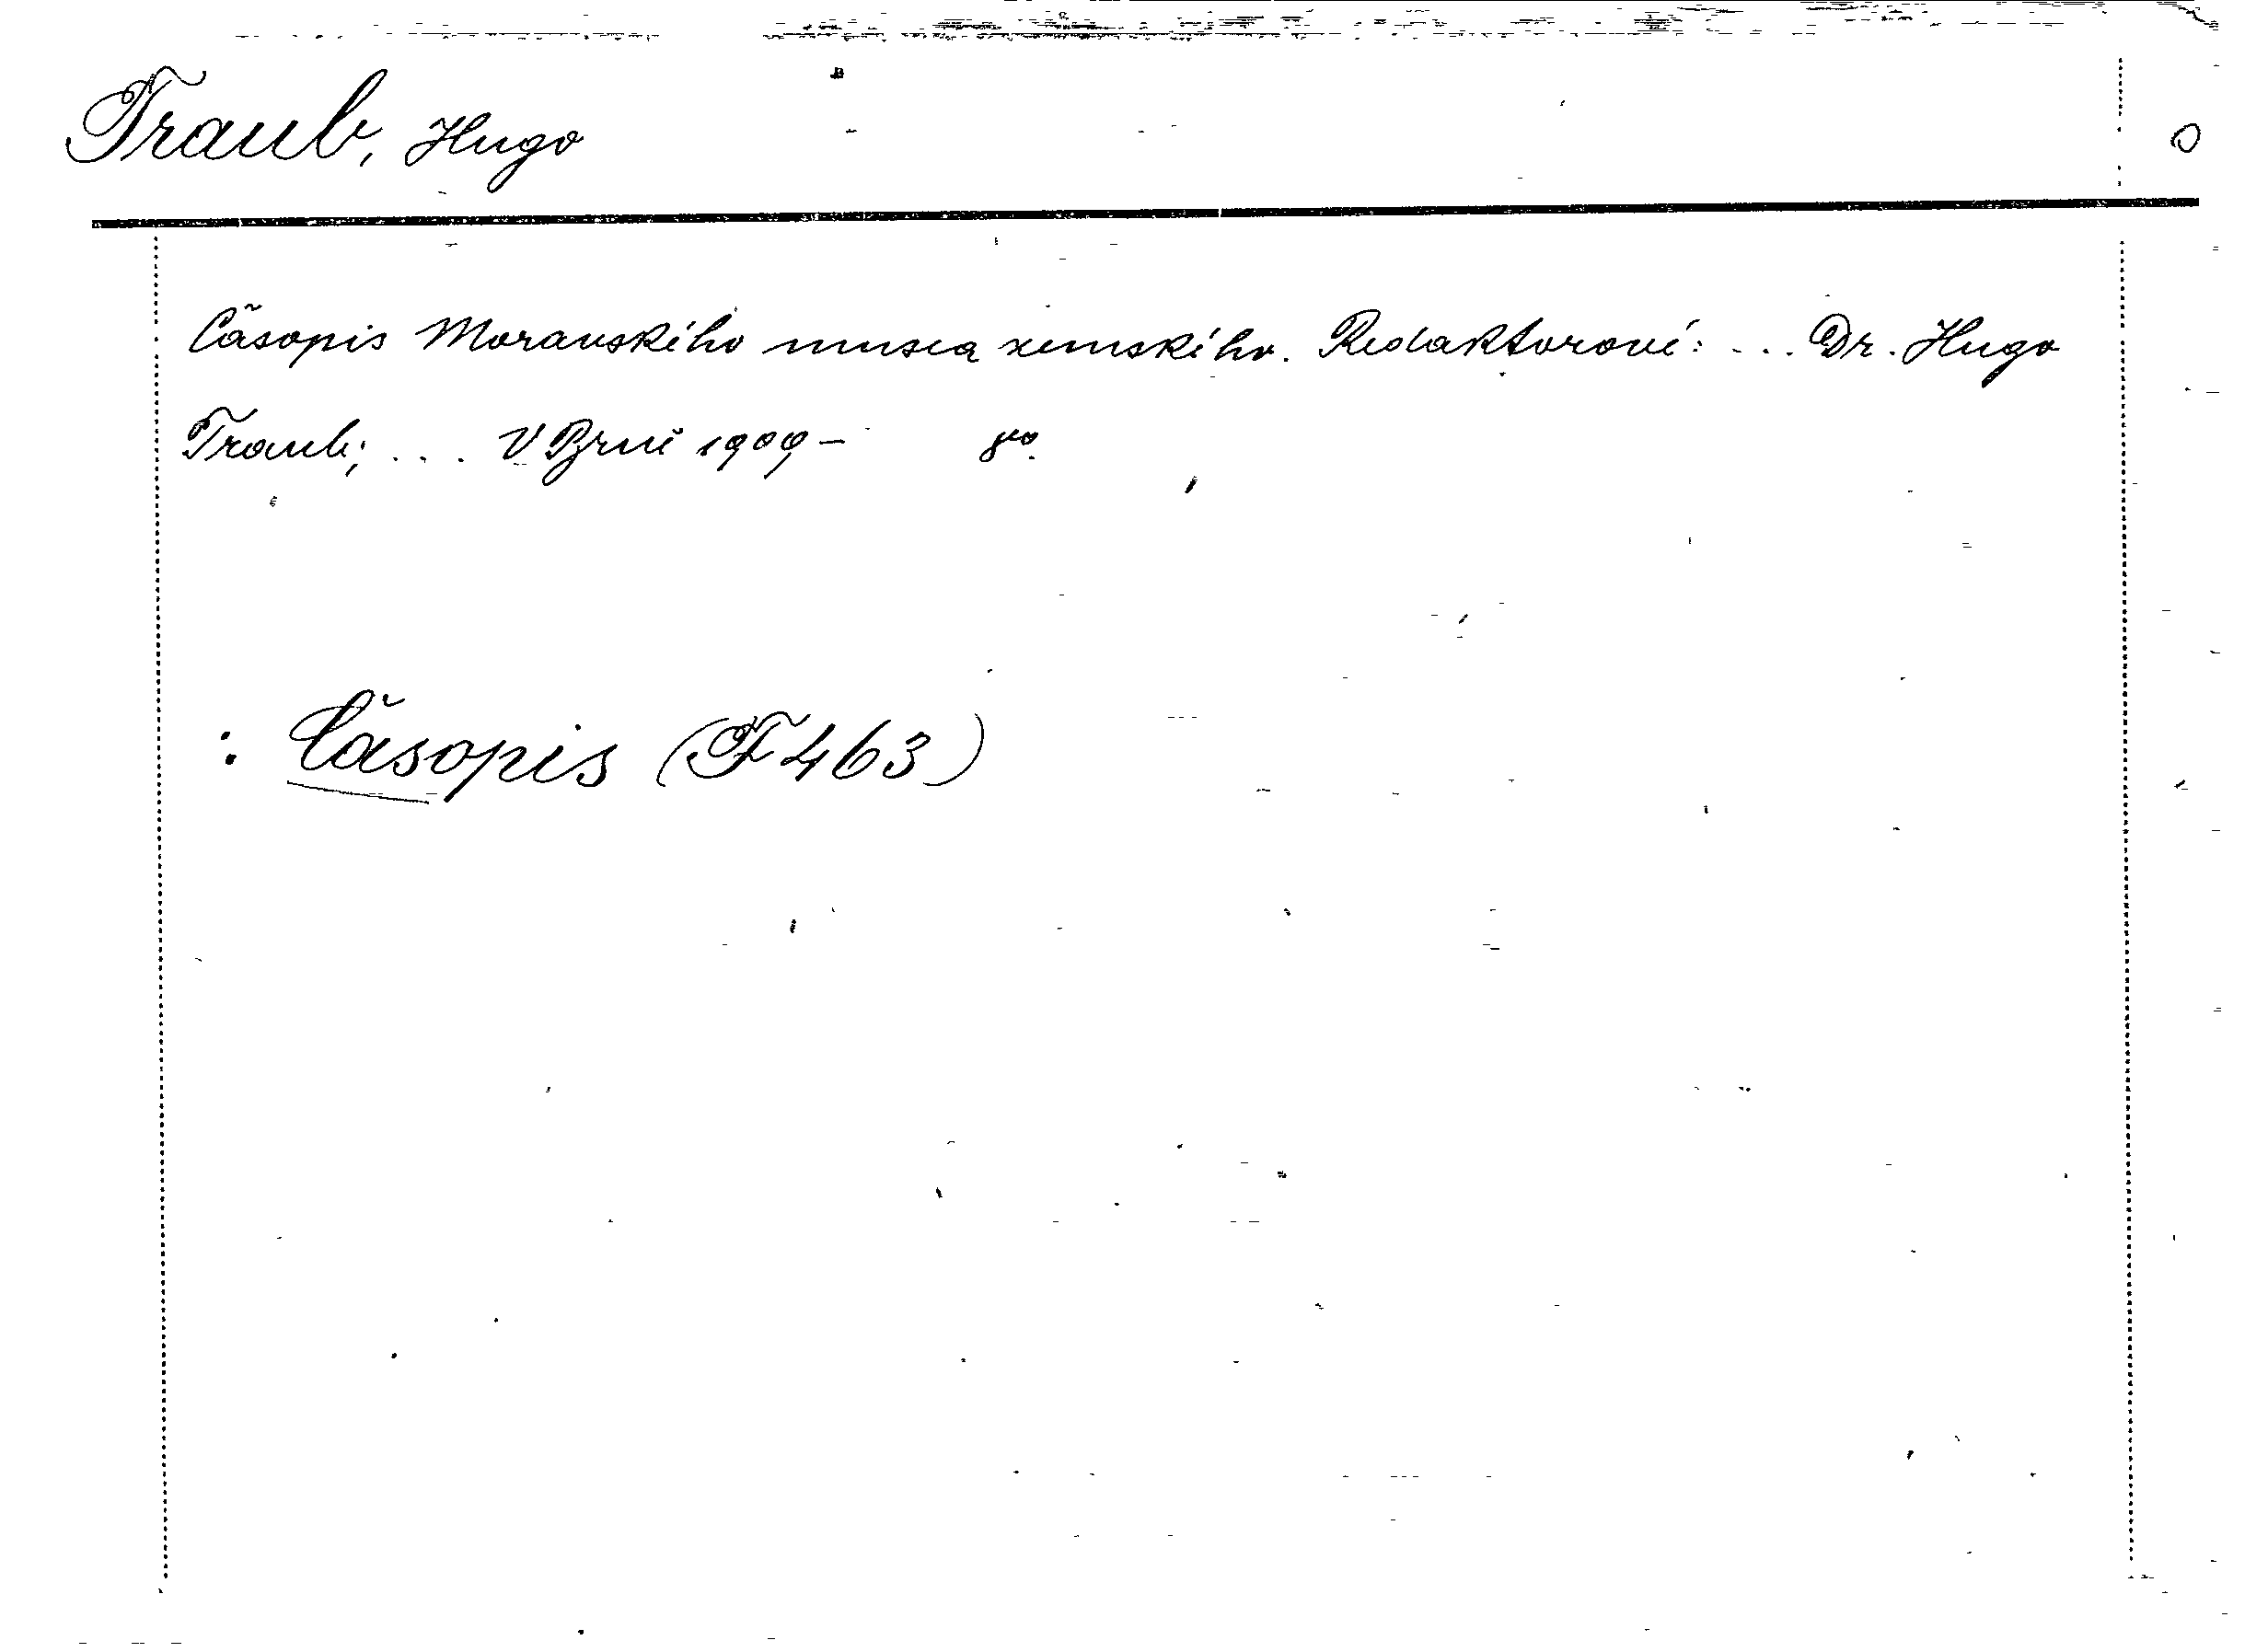 Traub, Hugo
O
Časopis Moravského musea zemského. Redaktorové: ... Dr. Hugo
Traub; ... V Brně 1909- 8vo.
: Časopis (F463)